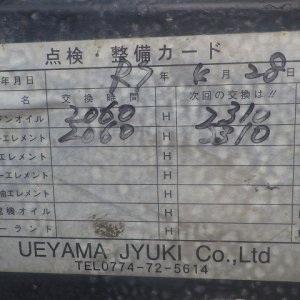 点検・整備カード
年月日 R7年 4月28日
名 交換時間 次回の交換は!!
ンオイル 2060 H 2310
エレメント 2060 H 2310
エレメント H
エレメント H
油エレメント H
機オイル H
ーラント H
UEYAMA JYUKI Co.,Ltd
TEL0774-72-5614